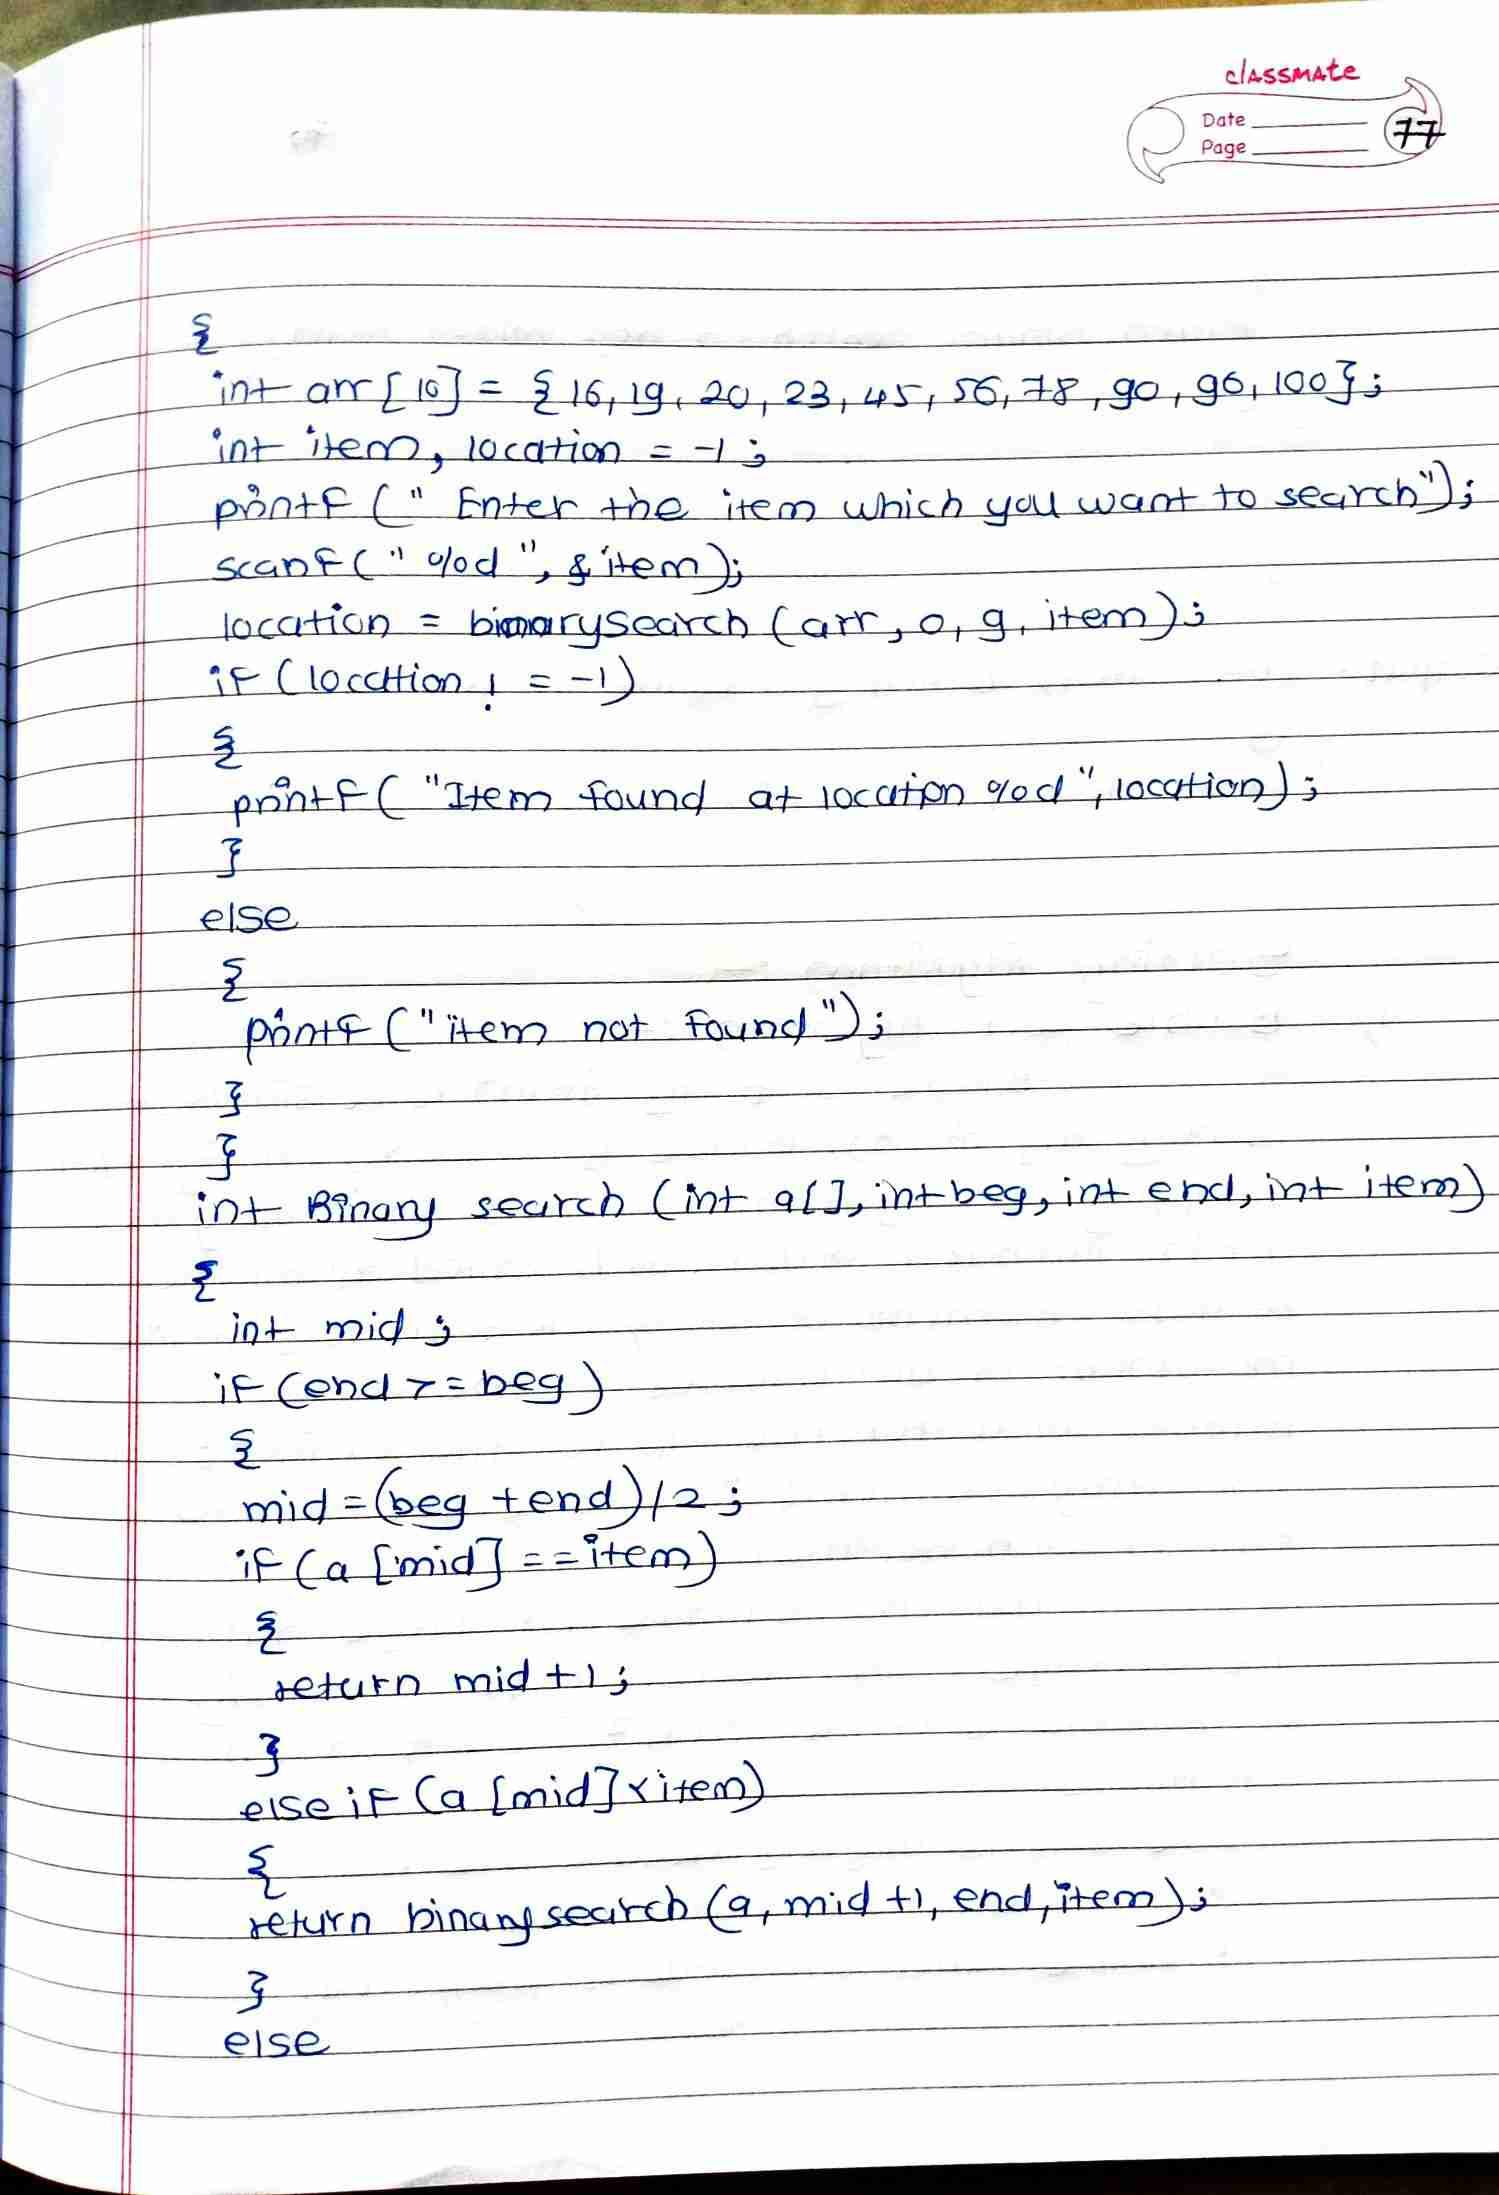 classmate
Date
Page
77
{
int arr[10] = {16, 19, 20, 23, 45, 56, 78, 90, 96, 100};
int item, location = -1;
printf (" Enter the item which you want to search");
scanf (" %d ", & item);
location = binarysearch (arr, 0, 9, item);
if (location ! = -1)
{
printf ( "Item found at location %d ", location);
}
else
{
printf ("item not found");
}
}
int Binary search (int a[], int beg, int end, int item)
{
int mid ;
if (end >= beg)
{
mid = (beg + end) / 2 ;
if (a [mid] == item)
{
return mid + 1 ;
}
else if (a [mid] < item)
{
return binarysearch (a, mid +1, end, item);
}
else